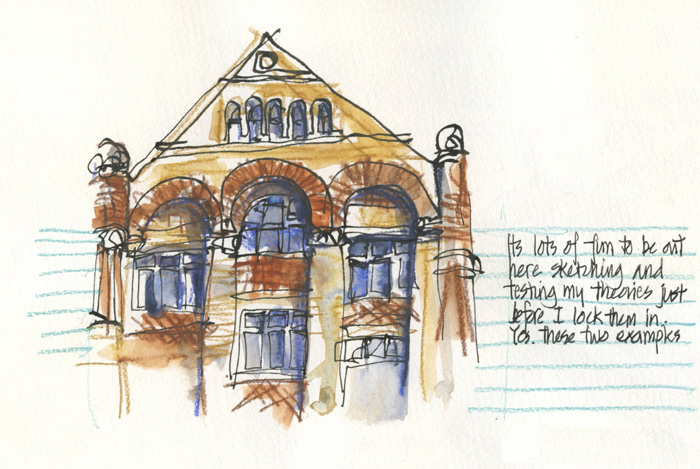 Its lots of fun to be out
here sketching and
testing my theories just
before I lock them in.
Yes. these two examples